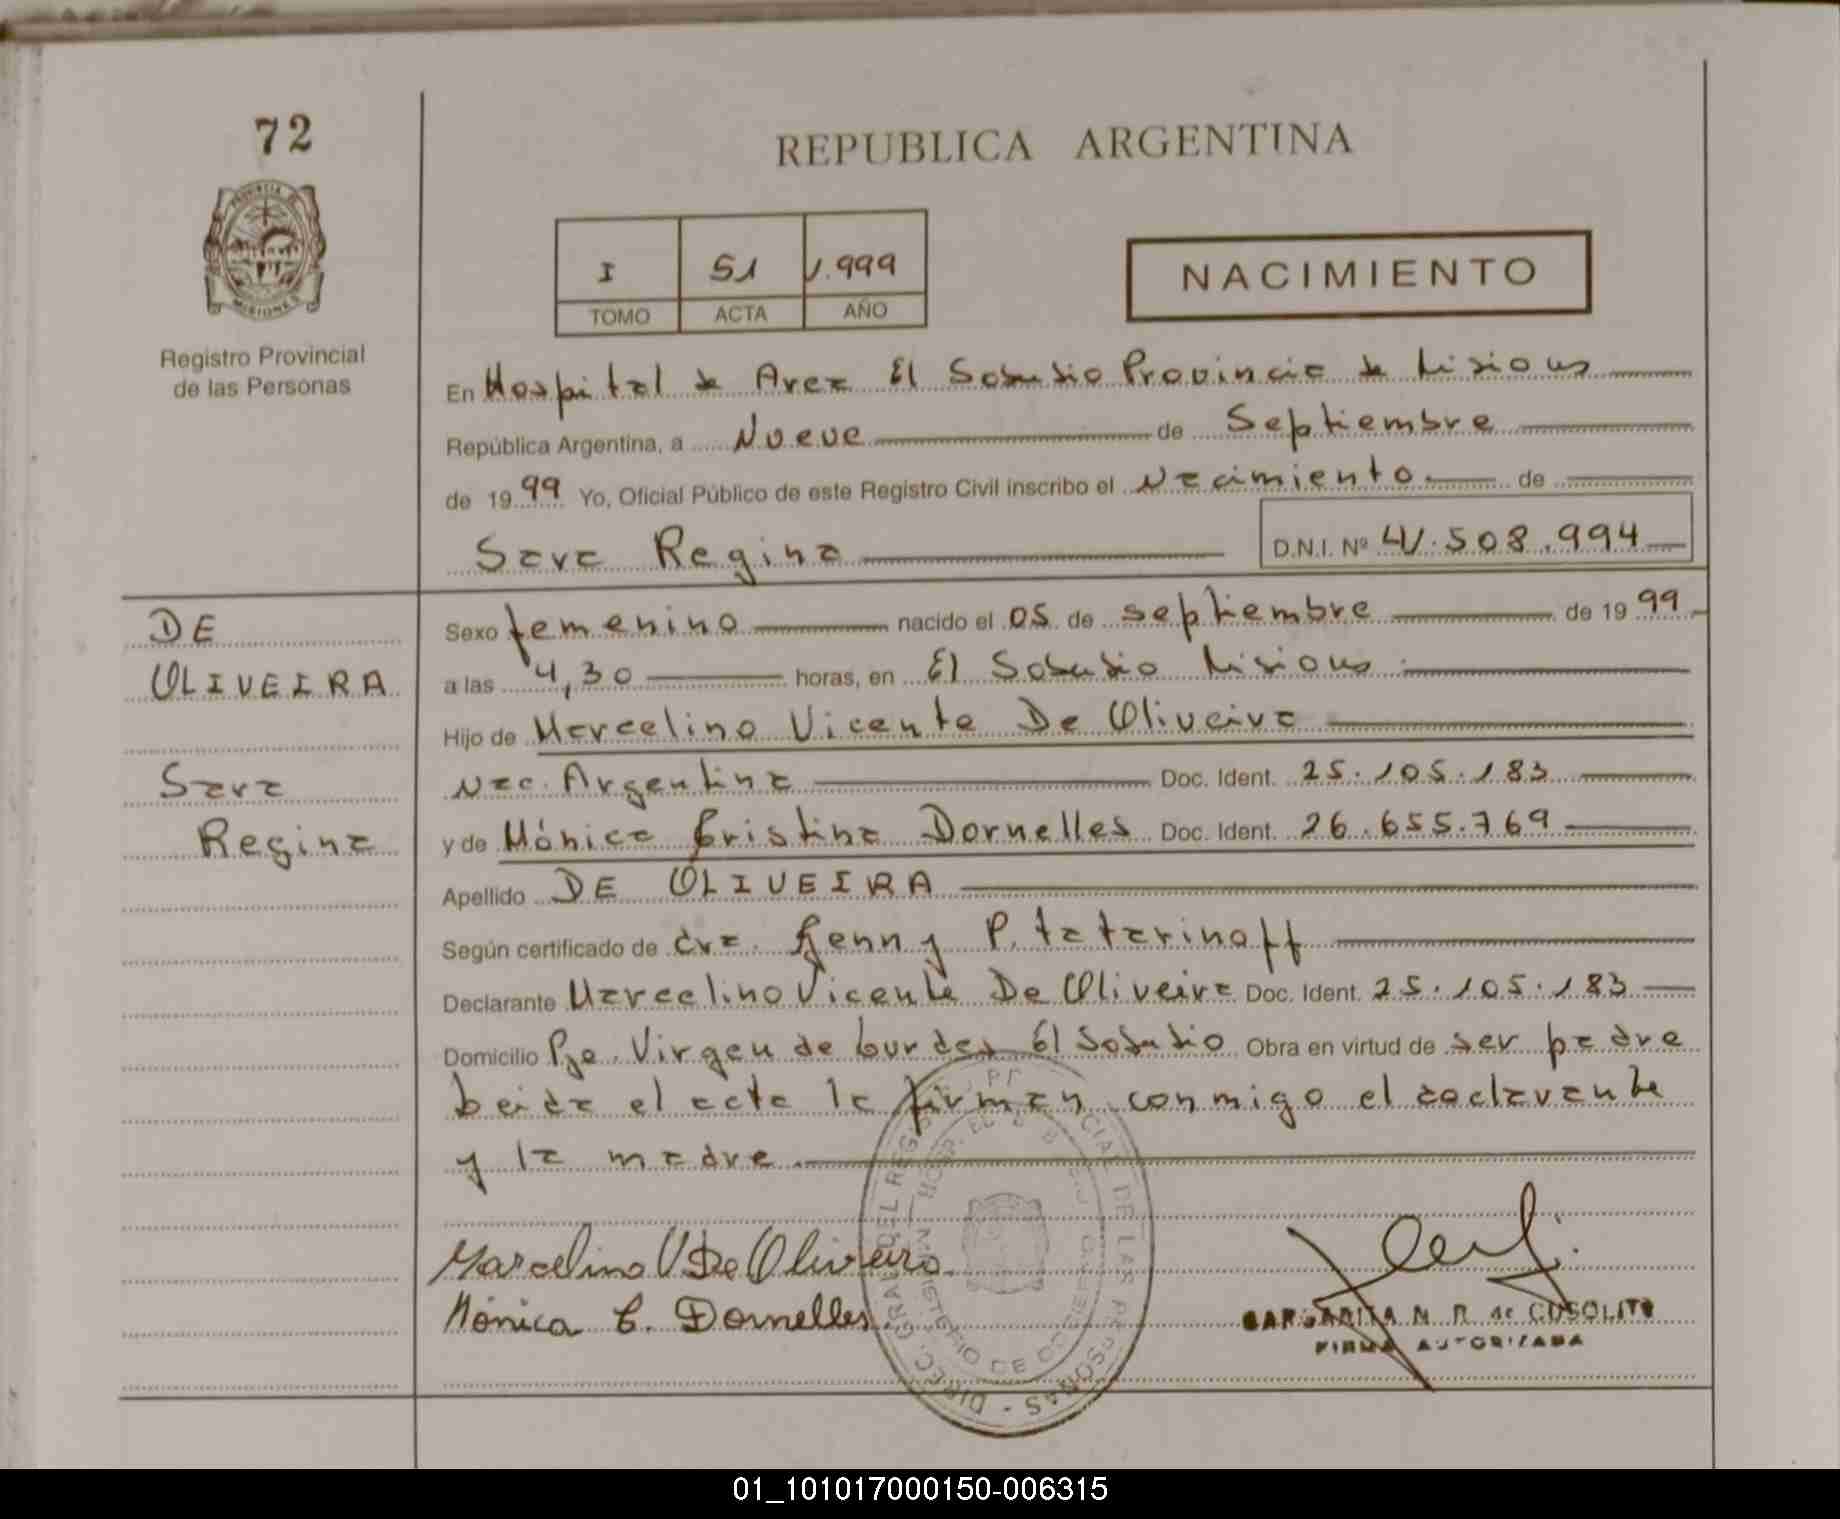 72
REPUBLICA ARGENTINA
PROVINCIA DE
MISIONES
Registro Provincial
de las Personas
I 51 1.999
TOMO ACTA AÑO
NACIMIENTO
En Hospital de Area El Soberbio Provincia de Misiones
República Argentina, a Nueve de Septiembre
de 1999 Yo, Oficial Público de este Registro Civil inscribo el Nacimiento de
Sara Regina D.N.I. Nº 41.508.994
DE
OLIVEIRA
Sara
Regina
Sexo femenino nacido el 05 de septiembre de 1999
a las 4,30 horas, en El Soberbio Misiones
Hijo de Marcelino Vicente De Oliveira
Nac. Argentina Doc. Ident. 25.105.183
y de Mónica Cristina Dornelles Doc. Ident. 26.655.769
Apellido DE OLIVEIRA
Según certificado de dra. Genny P. tatarinoff
Declarante Marcelino Vicente De Oliveira Doc. Ident. 25.105.183
Domicilio Pje. Virgen de Lurdes El Soberbio Obra en virtud de ser padre
Leida el acta la firman conmigo el declarante
y la madre
Marcelino V De Oliveira
Mónica C. Dornelles
DIREC. GRAL. DEL REG. PROVINCIAL DE LAS PERSONAS
MINISTERIO DE GOBIERNO
MARGARITA N. R. de CUSOLITO
FIRMA AUTORIZADA
01_101017000150-006315